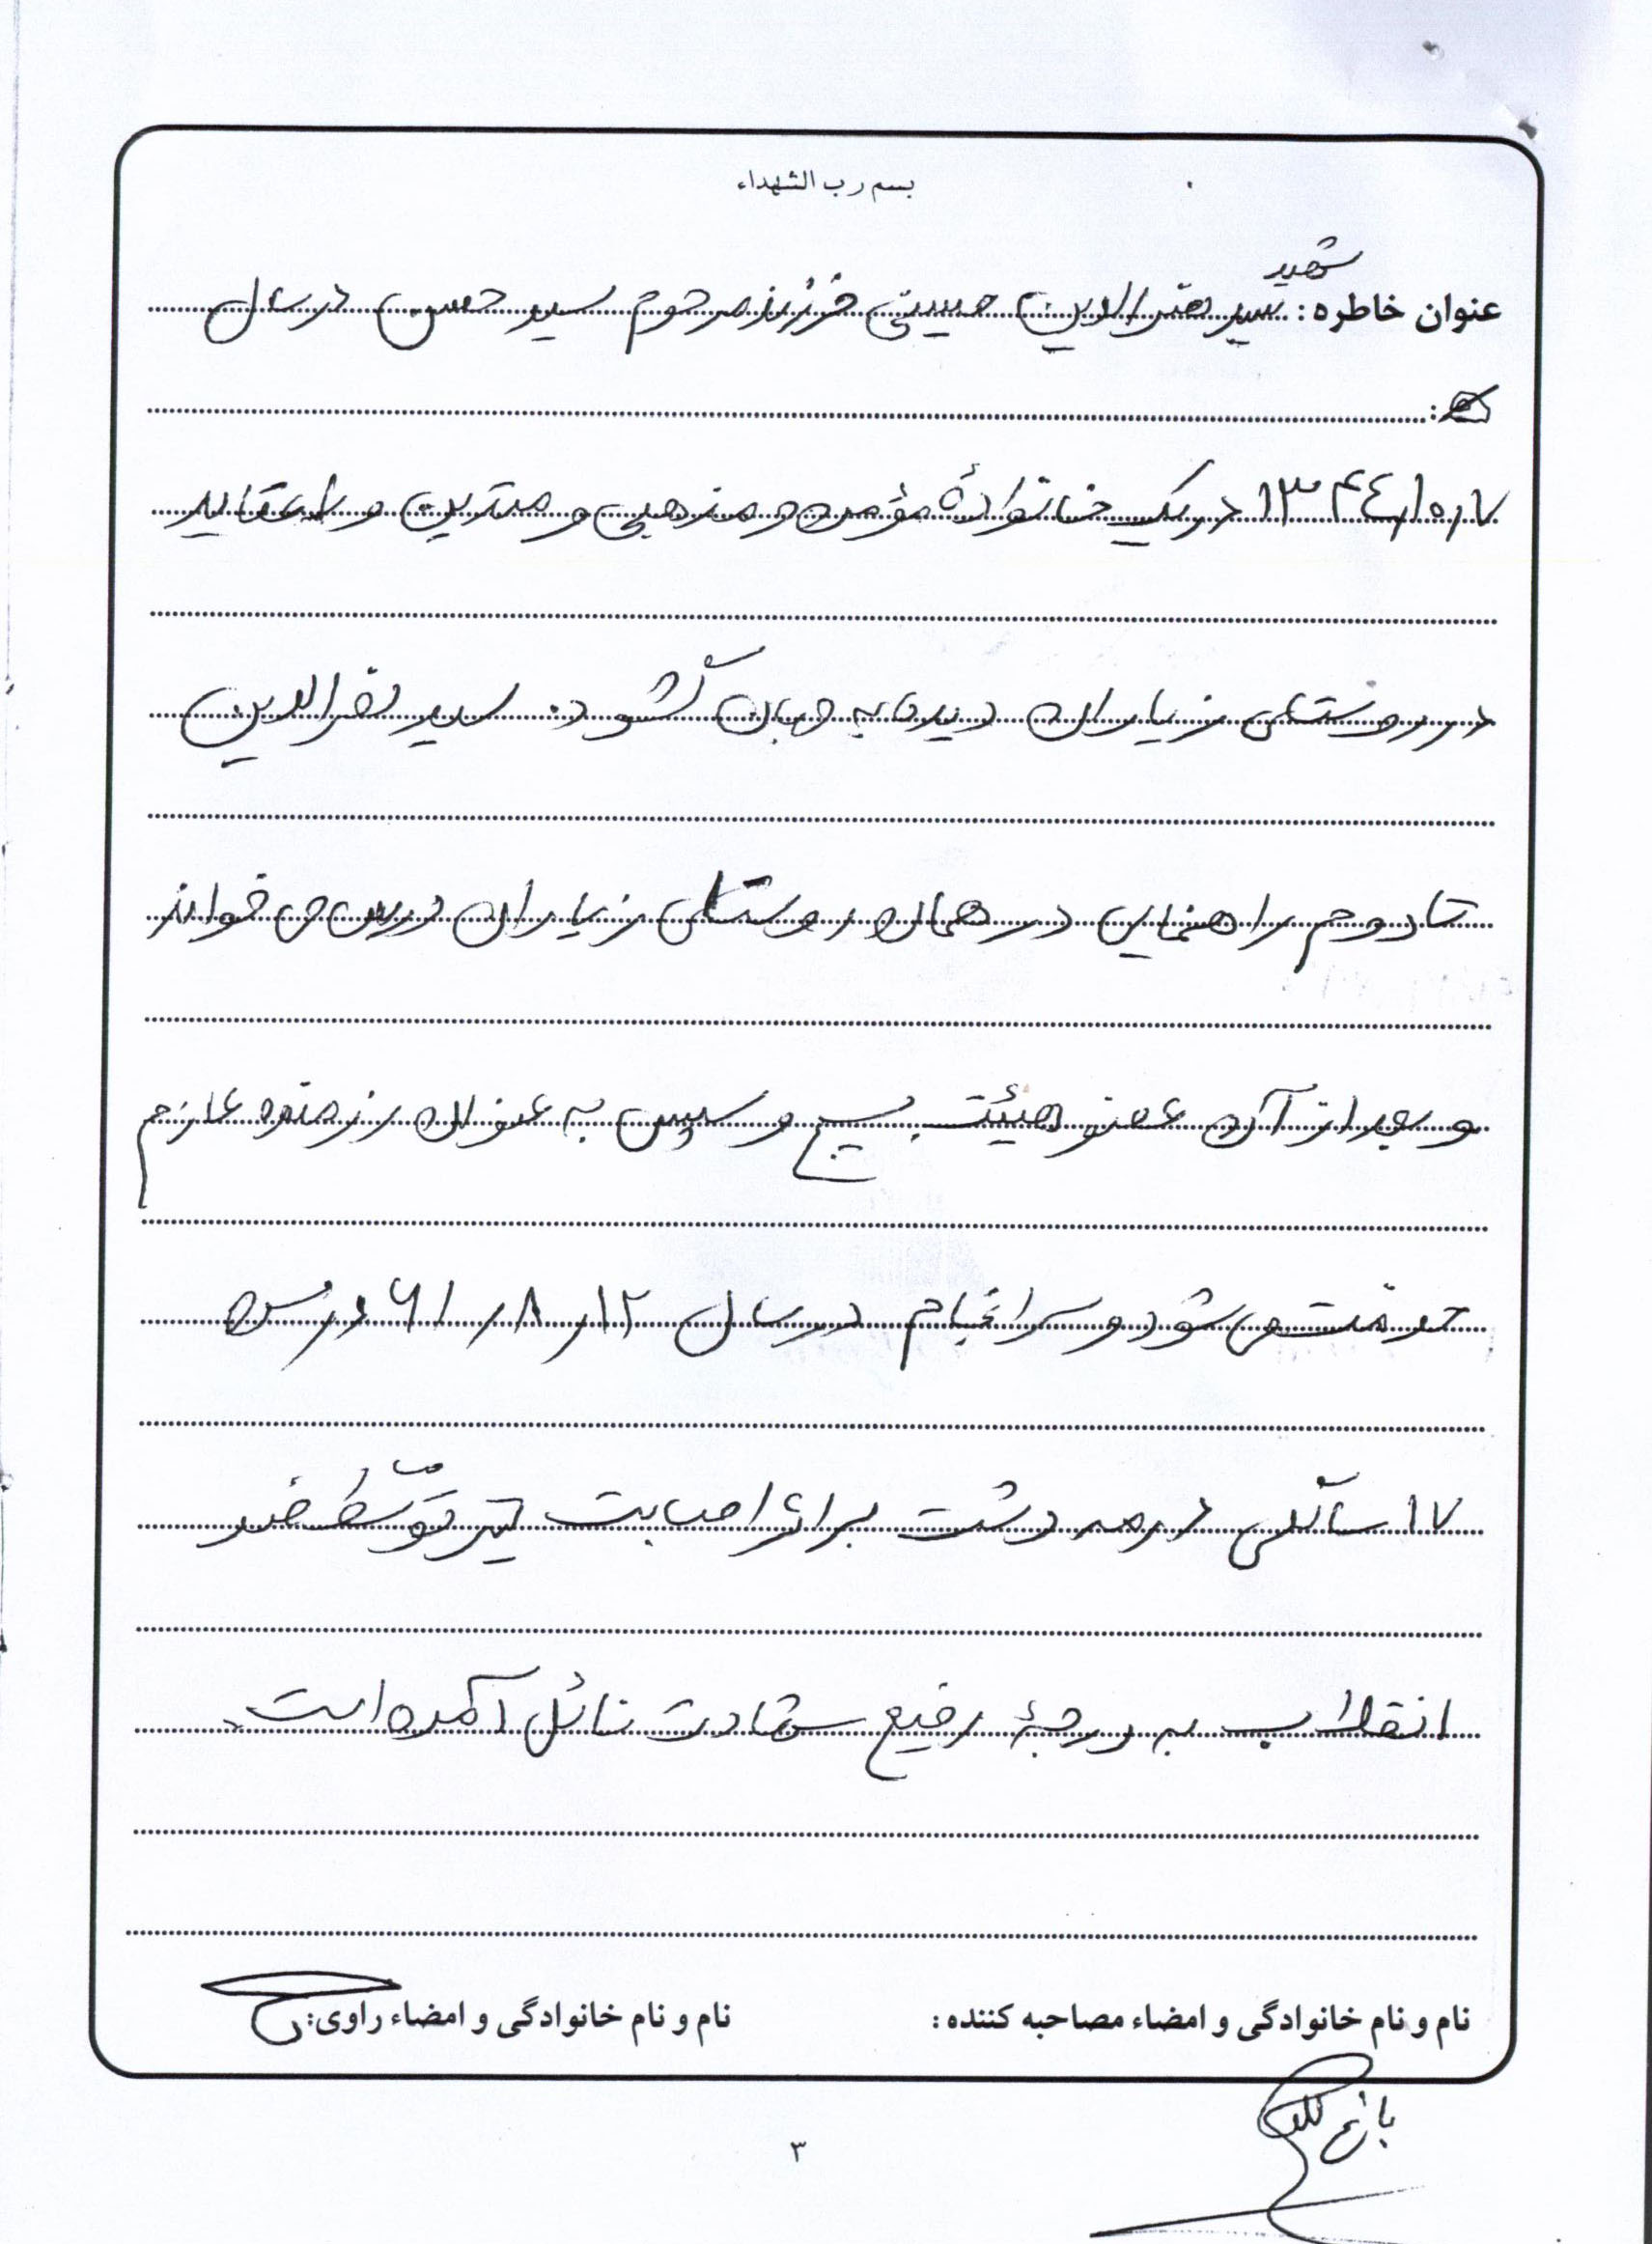 بسم رب الشهداء
شهید
عنوان خاطره: سید فخرالدین حسینی فرزند مرحوم سید حسن در سال
۱۳۴۴/۱۰/۷ در یک خانوادهٔ مؤمن و مذهبی و متدین و با عقاید
در روستای زیاران دیده به جهان گشود. سید فخرالدین
تا دوم راهنمایی در همان روستای زیاران درس می خواند
و بعد از آن عضو هیئت بسیج و سپس به عنوان رزمنده عازم
خدمت می شود و سرانجام در سال ۱۲/۸/۶۱ در سن
۱۷ سالگی در مر دشت براثر اصابت تیر توسط ضد
انقلاب به درجهٔ رفیع شهادت نائل آمده است.
نام و نام خانوادگی و امضاء مصاحبه کننده: نام و نام خانوادگی و امضاء راوی:
۳